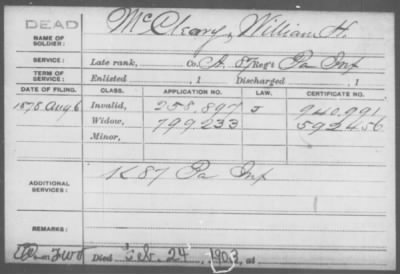 DEAD
NAME OF SOLDIER: McCleary, William H.
SERVICE: Late rank, Co. A. 87 Reg't Pa Inf
TERM OF SERVICE: Enlisted , 1 Discharged , 1
DATE OF FILING. CLASS. APPLICATION NO. LAW. CERTIFICATE NO.
1878 Aug 6 Invalid, 258.897 J 940.991
Widow, 799233 592456
Minor,
ADDITIONAL SERVICES: K 87 Pa Inf
REMARKS:
Died Feb. 24, 1903, at